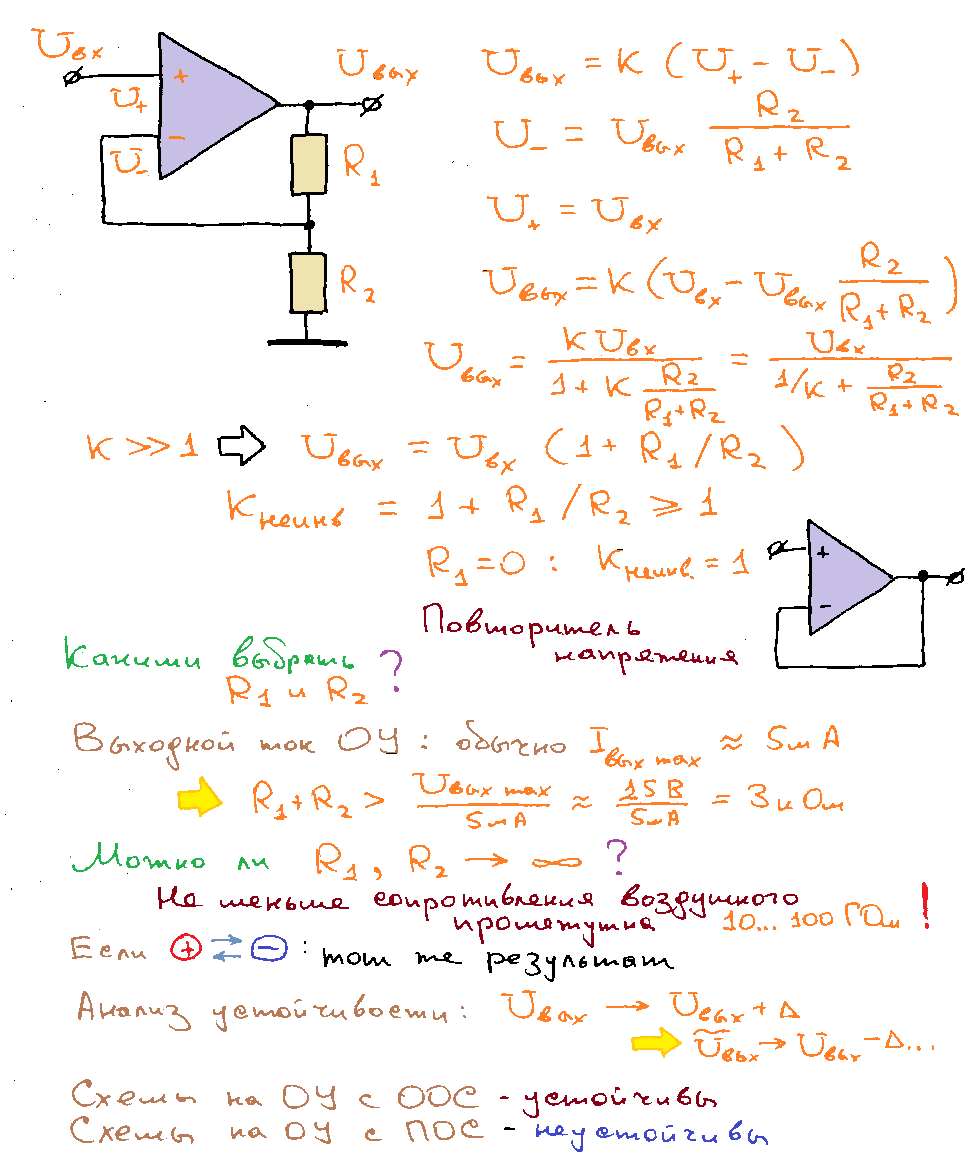 Uвх
Uвых
U+
U-
+
-
R1
R2
Uвых = K (U+ - U-)
U- = Uвых R2 / (R1 + R2)
U+ = Uвх
Uвых = K (Uвх - Uвых R2 / (R1 + R2))
Uвых = K Uвх / (1 + K R2 / (R1 + R2)) = Uвх / (1/K + R2 / (R1 + R2))
K >> 1 ⇒ Uвых = Uвх (1 + R1 / R2)
Kнеинв = 1 + R1 / R2 ⩾ 1
R1 = 0 : Kнеинв. = 1
+
-
Повторитель
напряжения
Какими выбрать
R1 и R2 ?
Выходной ток ОУ : обычно Iвых max ≈ 5мА
⇒ R1 + R2 > Uвых max / 5мА ≈ 15В / 5мА = 3кОм
Можно ли R1, R2 → ∞ ?
Не меньше сопротивления воздушного
промежутка 10... 100 ГОм !
Если + ⇄ - : тот же результат
Анализ устойчивости : Uвых → Uвых + Δ
⇒ Ũвых → Uвых - Δ...
Схемы на ОУ с ООС - устойчивы
Схемы на ОУ с ПОС - неустойчивы